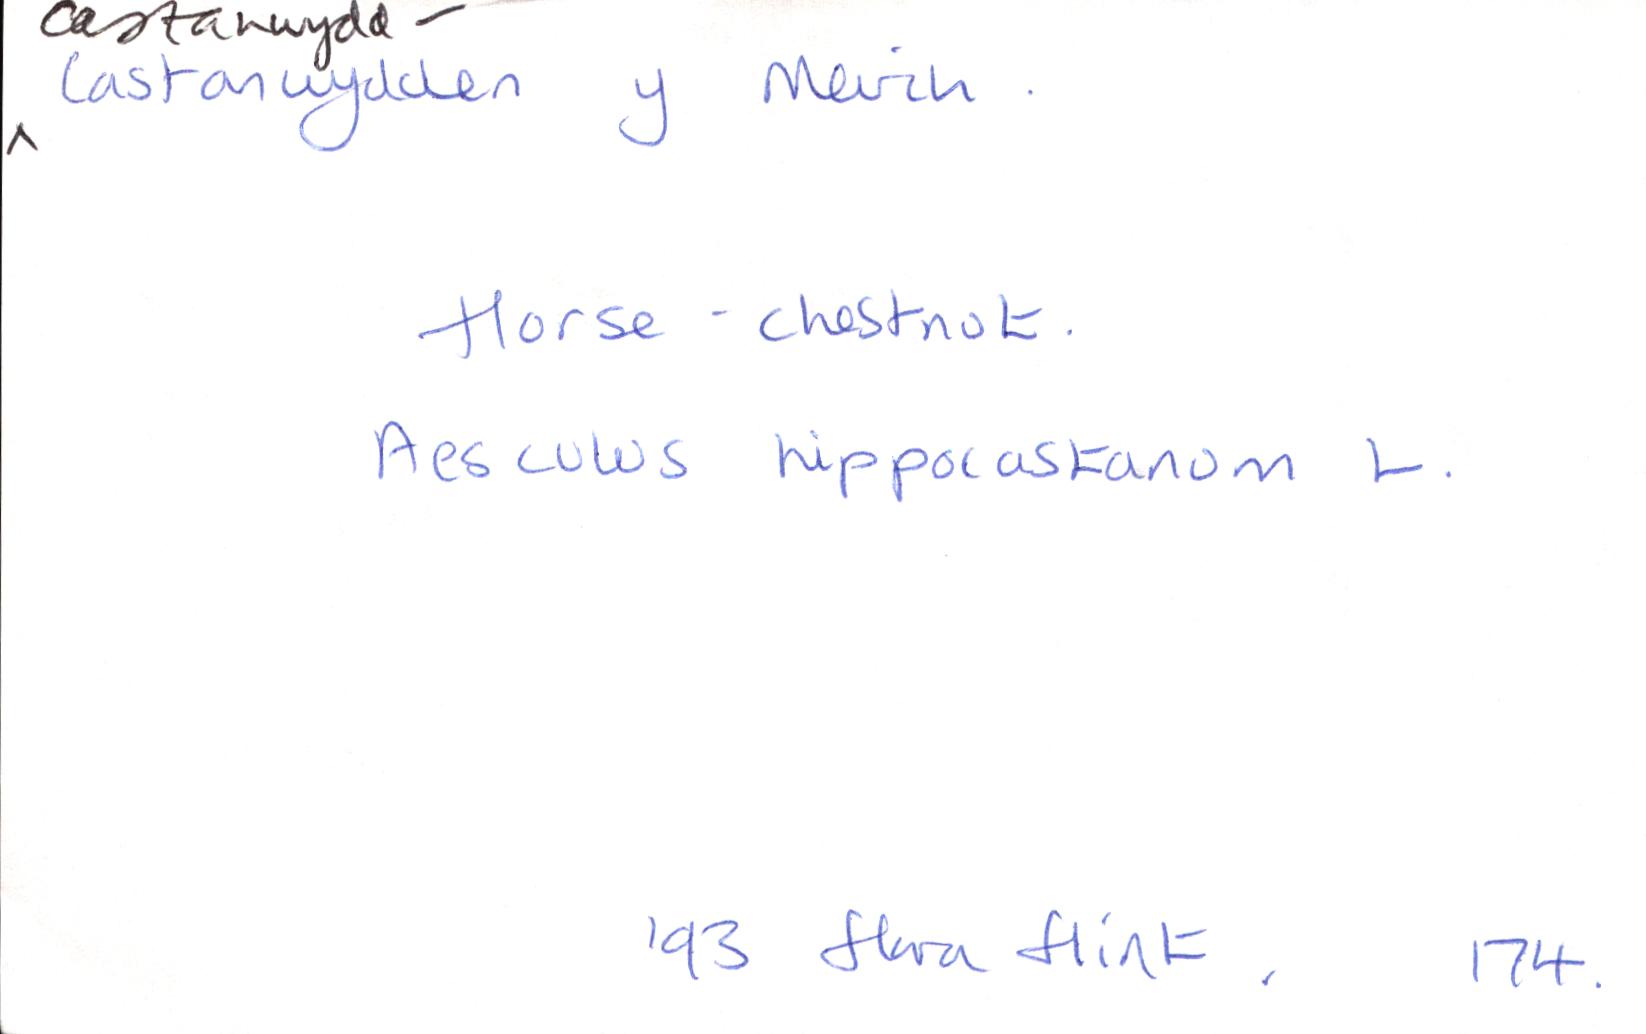 castanwydd -
^ Castanwydden y Meirch.
Horse - chestnut.
Aesculus hippocastanum L.
'93 Flora Flint, 174.